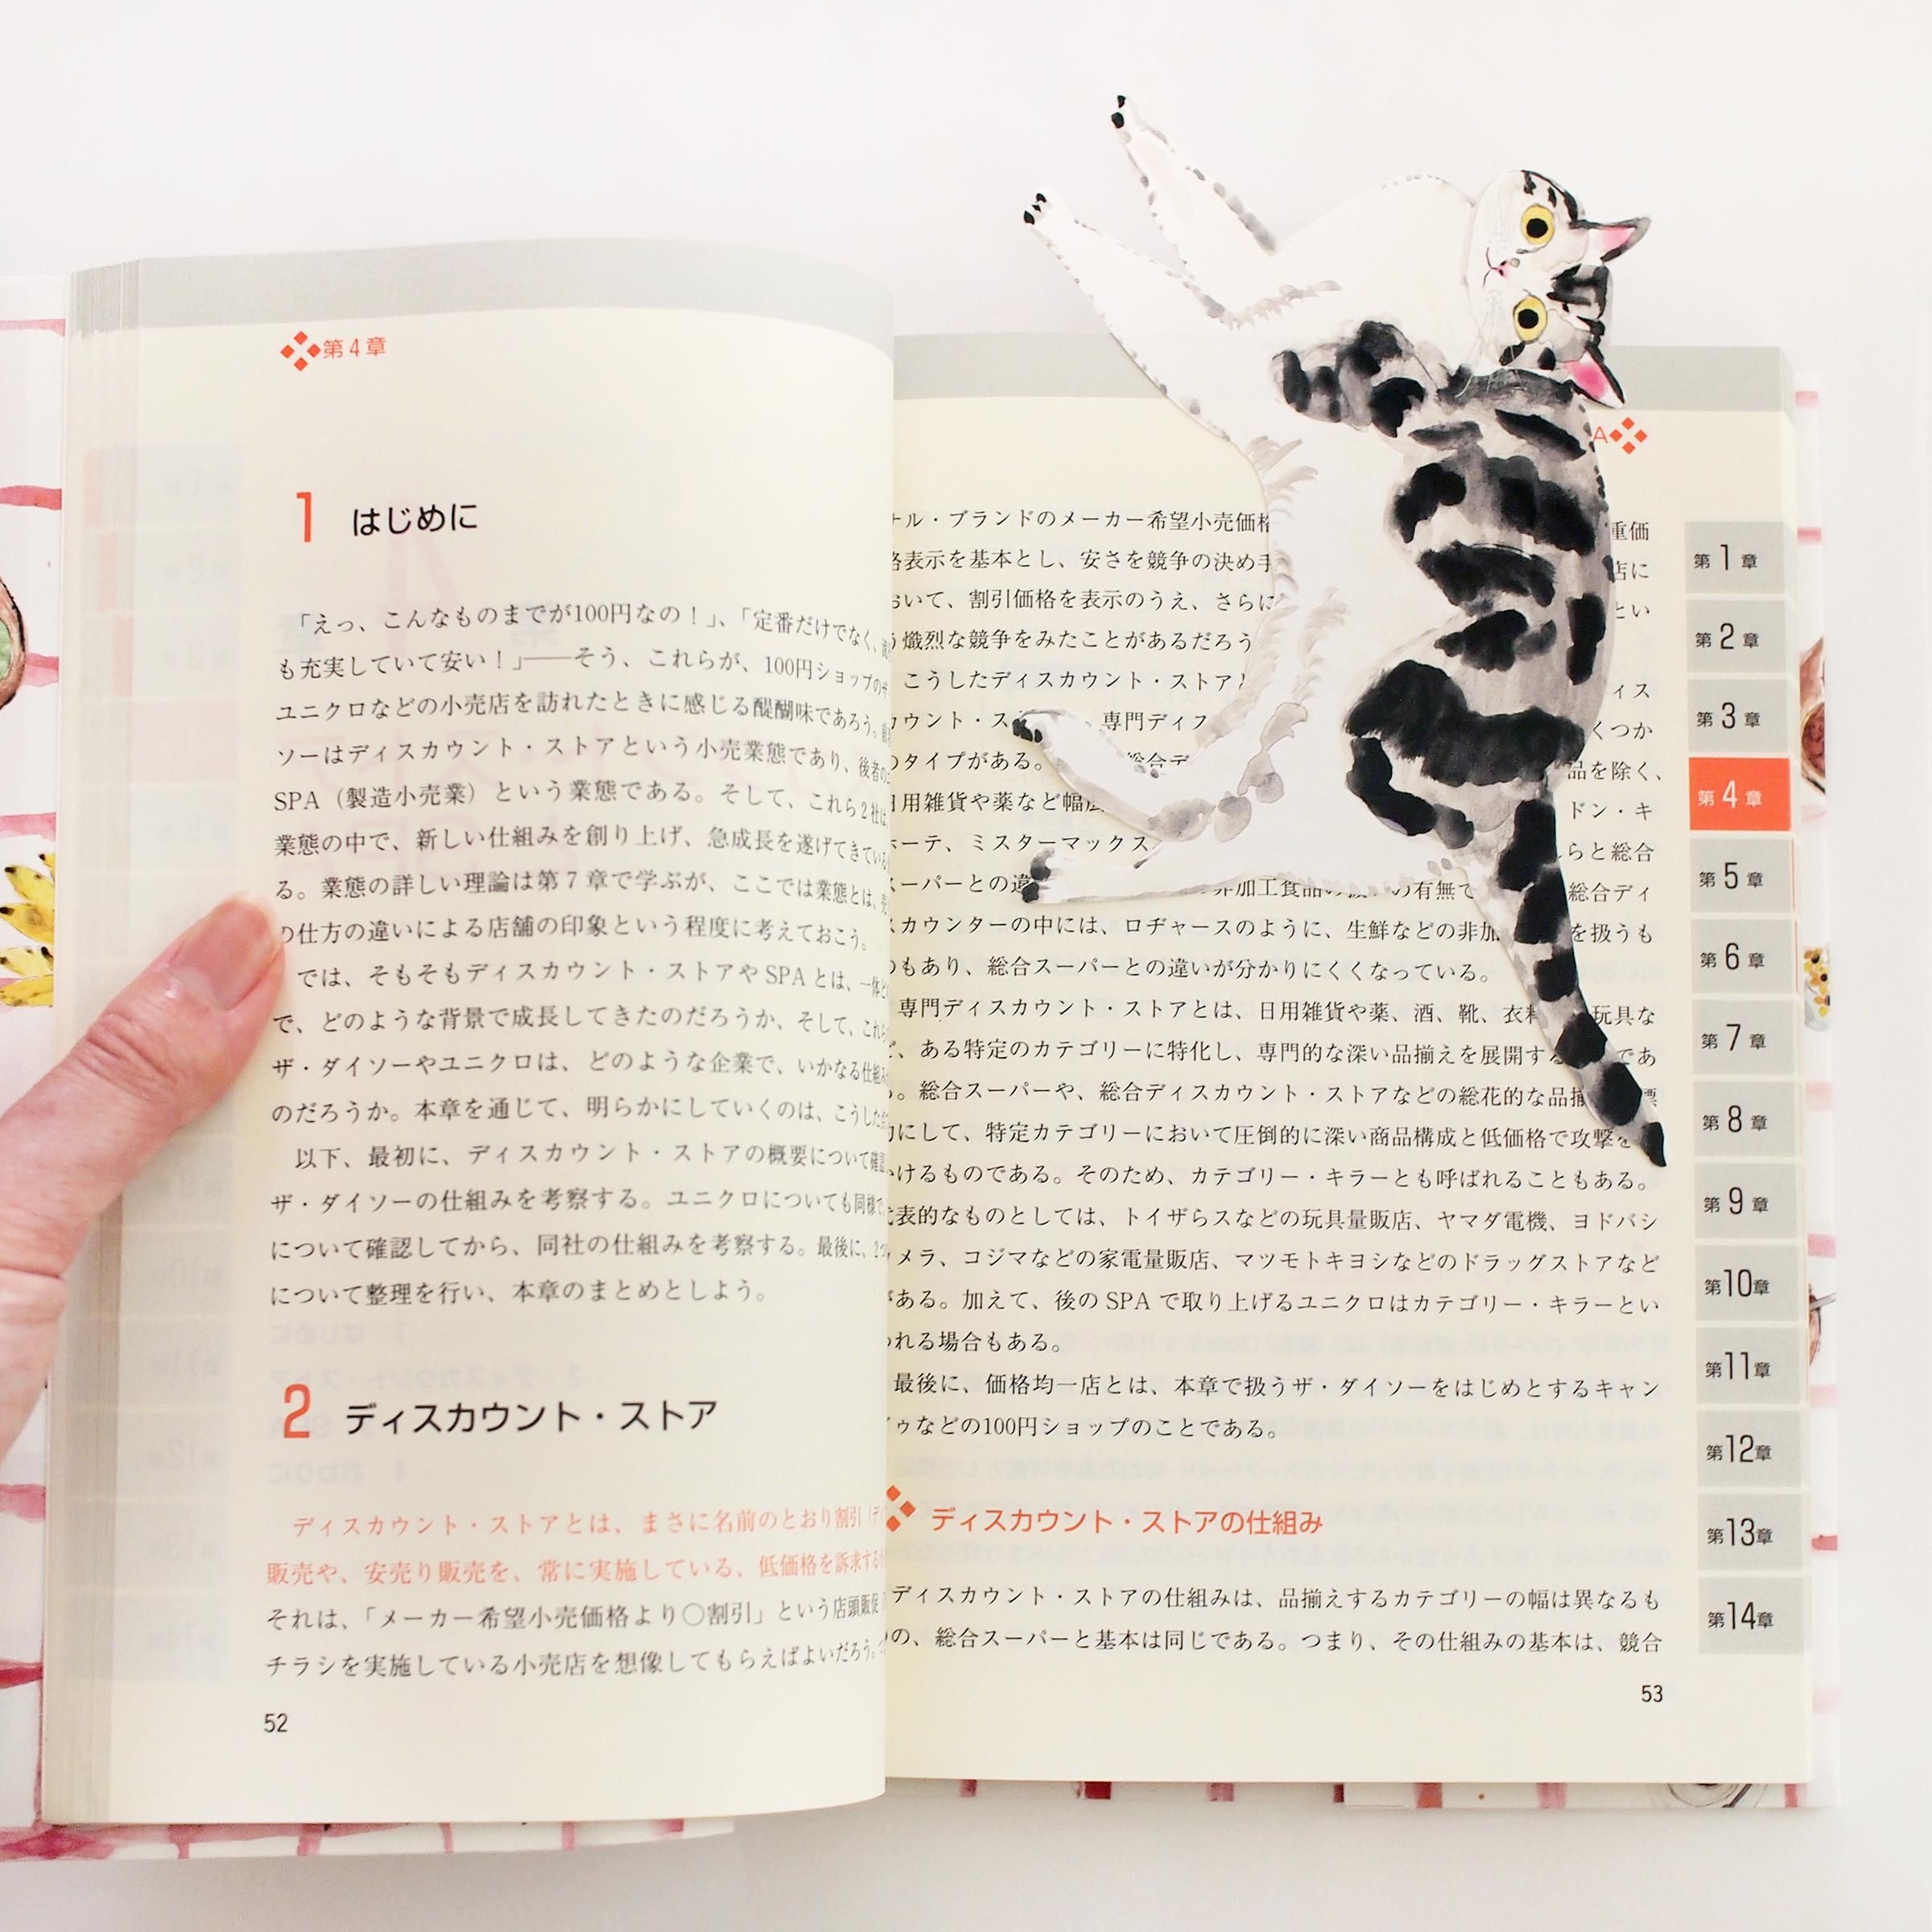 第4章
1 はじめに
「えっ、こんなものまでが100円なの！」、「定番だけでなく、
も充実していて安い！」――そう、これらが、100円ショップの
ユニクロなどの小売店を訪れたときに感じる醍醐味であろう。
ソーはディスカウント・ストアという小売業態であり、後者の
SPA（製造小売業）という業態である。そして、これら2社は、
業態の中で、新しい仕組みを創り上げ、急成長を遂げてきている
る。業態の詳しい理論は第7章で学ぶが、ここでは業態とは、
の仕方の違いによる店舗の印象という程度に考えておこう。
では、そもそもディスカウント・ストアやSPAとは、一体
で、どのような背景で成長してきたのだろうか、そして、これ
ザ・ダイソーやユニクロは、どのような企業で、いかなる仕組
のだろうか。本章を通じて、明らかにしていくのは、こうした
以下、最初に、ディスカウント・ストアの概要について確
ザ・ダイソーの仕組みを考察する。ユニクロについても同様
について確認してから、同社の仕組みを考察する。最後に、2
について整理を行い、本章のまとめとしよう。
2 ディスカウント・ストア
ディスカウント・ストアとは、まさに名前のとおり割引
販売や、安売り販売を、常に実施している、低価格を訴求する
それは、「メーカー希望小売価格より○割引」という店頭販促
チラシを実施している小売店を想像してもらえばよいだろう。
52
A
ル・ブランドのメーカー希望小売価格 重価
表示を基本とし、安さを競争の決め手 店に
おいて、割引価格を表示のうえ、さらに とい
う熾烈な競争をみたことがあるだろう
こうしたディスカウント・ストア ィス
カウント・ス 専門ディフ くつか
のタイプがある。 総合デ 品を除く、
日用雑貨や薬など幅広 ドン・キ
ホーテ、ミスターマックス らと総合
スーパーとの違 非加工食品の の有無で 総合ディ
スカウンターの中には、ロヂャースのように、生鮮などの非加 を扱うも
のもあり、総合スーパーとの違いが分かりにくくなっている。
専門ディスカウント・ストアとは、日用雑貨や薬、酒、靴、衣料 玩具な
ど、ある特定のカテゴリーに特化し、専門的な深い品揃えを展開する であ
る。総合スーパーや、総合ディスカウント・ストアなどの総花的な品揃 標
的にして、特定カテゴリーにおいて圧倒的に深い商品構成と低価格で攻撃を
かけるものである。そのため、カテゴリー・キラーとも呼ばれることもある。
代表的なものとしては、トイザらスなどの玩具量販店、ヤマダ電機、ヨドバシ
メラ、コジマなどの家電量販店、マツモトキヨシなどのドラッグストアなど
がある。加えて、後のSPAで取り上げるユニクロはカテゴリー・キラーとい
われる場合もある。
最後に、価格均一店とは、本章で扱うザ・ダイソーをはじめとするキャン
ドゥなどの100円ショップのことである。
ディスカウント・ストアの仕組み
ディスカウント・ストアの仕組みは、品揃えするカテゴリーの幅は異なるも
の、総合スーパーと基本は同じである。つまり、その仕組みの基本は、競合
53
第1章
第2章
第3章
第4章
第5章
第6章
第7章
第8章
第9章
第10章
第11章
第12章
第13章
第14章